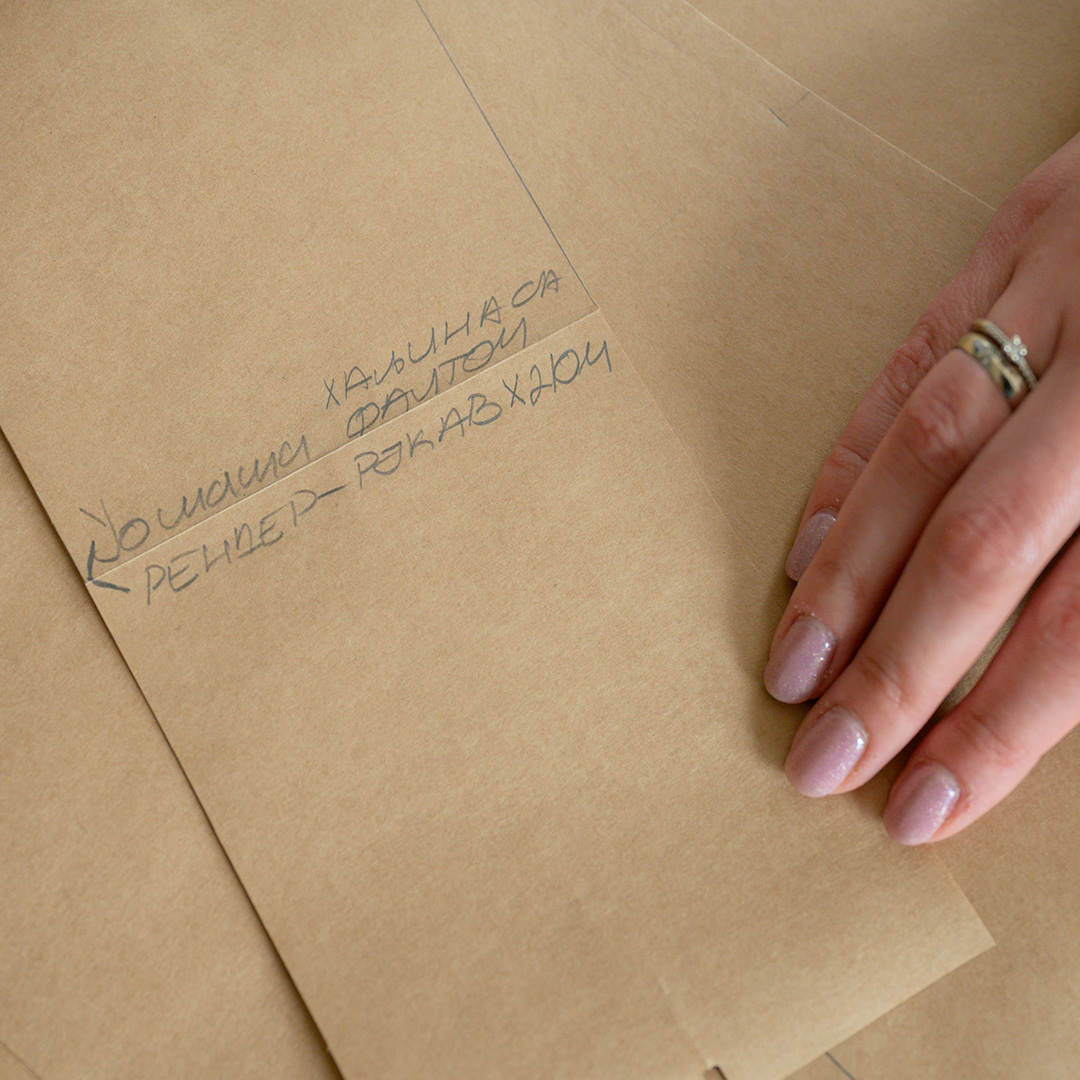 ХАЉИНА СА
ФАЛТОМ
РЕНДЕР - РУКАВ X2КОМ